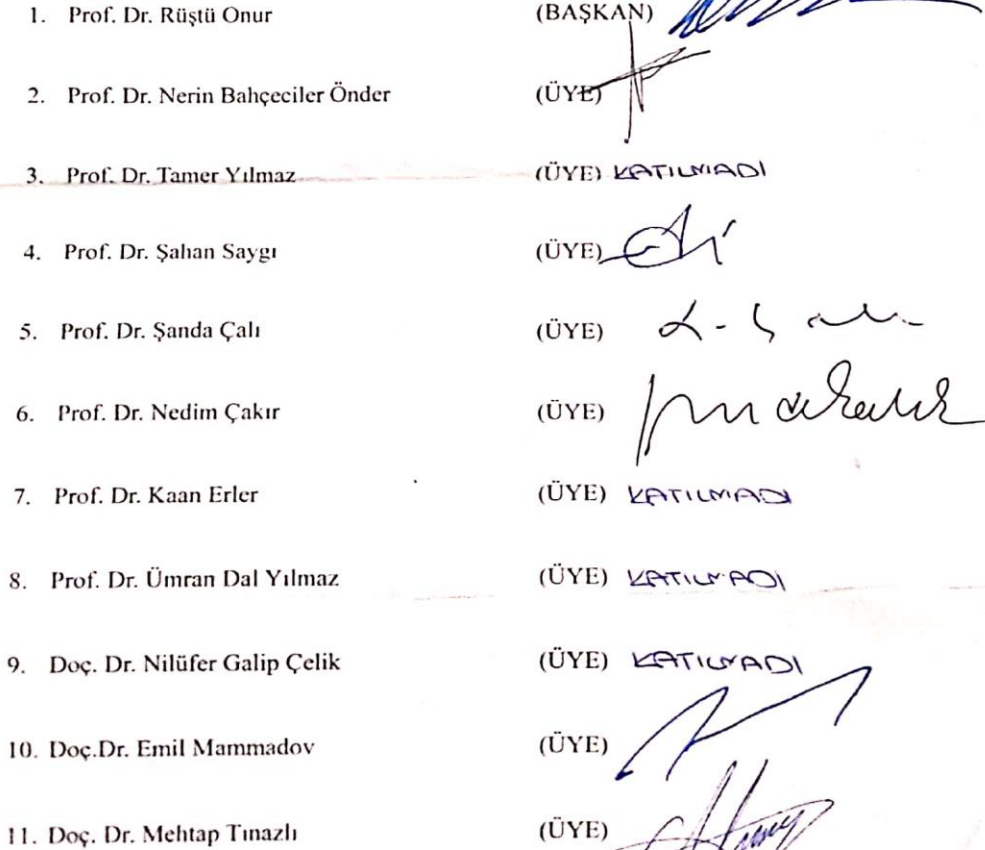 1. Prof. Dr. Rüştü Onur (BAŞKAN)
2. Prof. Dr. Nerin Bahçeciler Önder (ÜYE)
3. Prof. Dr. Tamer Yılmaz (ÜYE) KATILMADI
4. Prof. Dr. Şahan Saygı (ÜYE)
5. Prof. Dr. Şanda Çalı (ÜYE)
6. Prof. Dr. Nedim Çakır (ÜYE)
7. Prof. Dr. Kaan Erler (ÜYE) KATILMADI
8. Prof. Dr. Ümran Dal Yılmaz (ÜYE) KATILMADI
9. Doç. Dr. Nilüfer Galip Çelik (ÜYE) KATILMADI
10. Doç.Dr. Emil Mammadov (ÜYE)
11. Doç. Dr. Mehtap Tınazlı (ÜYE)